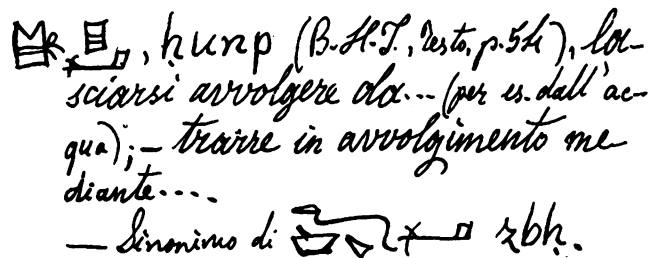 , ḥunp (B.H.T., Testo, p. 54), la-
sciarsi avvolgere da... (per es. dall'ac-
qua); — trarre in avvolgimento me-
diante....
— Sinonimo di zbḥ.